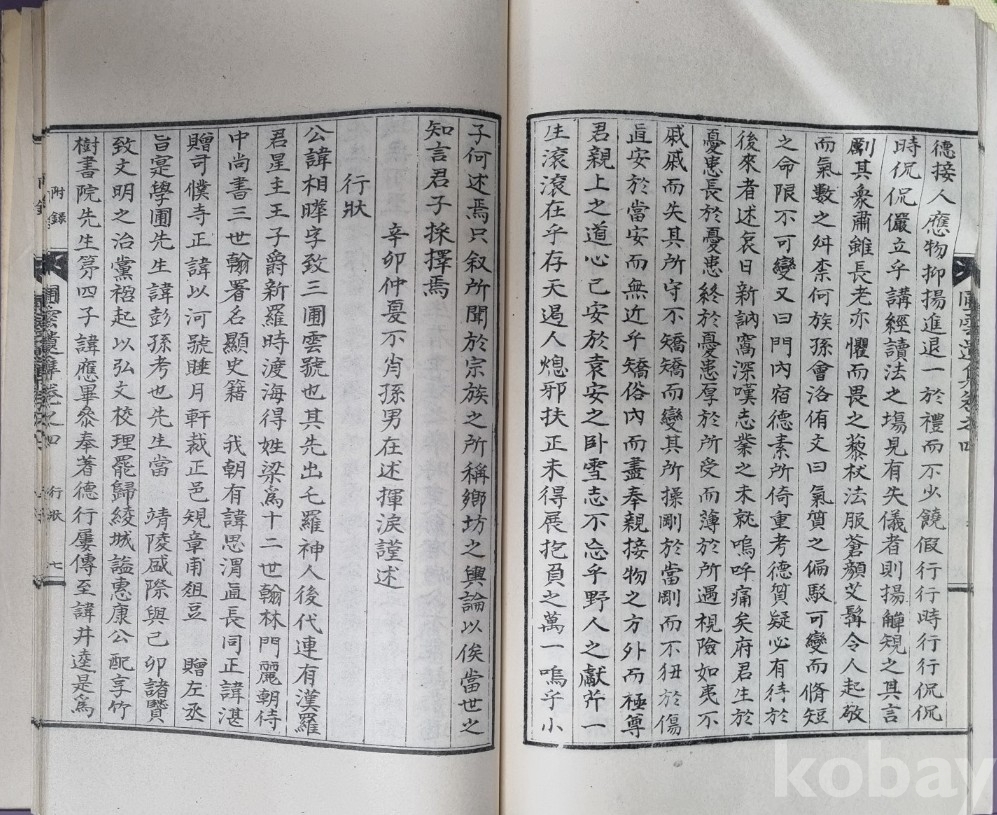 德接人應物抑揚進退一於禮而不少饒假行行時行行侃侃
時侃侃儼立乎講經讀法之場見有失儀者則揚觶規之其言
劘其衆肅雖長老亦懼而畏之藜杖法服蒼顔艾髥令人起敬
而氣數之舛柰何族孫會洛侑文曰氣質之偏駁可變而脩短
之命限不可變又曰門內宿德素所倚重考德質疑必有待於
後來者述哀日新訥窩深嘆志業之未就嗚呼痛矣府君生於
憂患長於憂患終於憂患厚於所受而薄於所遇視險如夷不
戚戚而失其所守不矯矯而變其所操剛於當剛而不狃於傷
直安於當安而無近乎矯俗內而盡奉親接物之方外而極尊
君親上之道心已安於袁安之臥雪志不忘乎野人之獻芹一
生滾滾在乎存天遏人熄邪扶正未得展抱負之萬一嗚乎小
圃雲遺集卷之四
子何述焉只叙所聞於宗族之所稱鄉坊之輿論以俟當世之
知言君子採擇焉
辛卯仲憂不肖孫男在述揮淚謹述
行狀
公諱相曄字致三圃雲號也其先出乇羅神人後代連有漢羅
君星主王子爵新羅時渡海得姓梁爲十二世翰林門麗朝侍
中尚書三世翰署名顯史籍 我朝有諱思渭直長同正諱湛
贈司僕寺正諱以河號睡月軒裁正邑規章甫俎豆 贈左丞
旨寔學圃先生諱彭孫考也先生當 靖陵盛際與己卯諸賢
致文明之治黨禍起以弘文校理罷歸綾城謚惠康公配享竹
樹書院先生第四子諱應畢叅奉著德行屢傳至諱井逵是爲
附錄
圃雲遺集卷之四
行狀
七
kobay